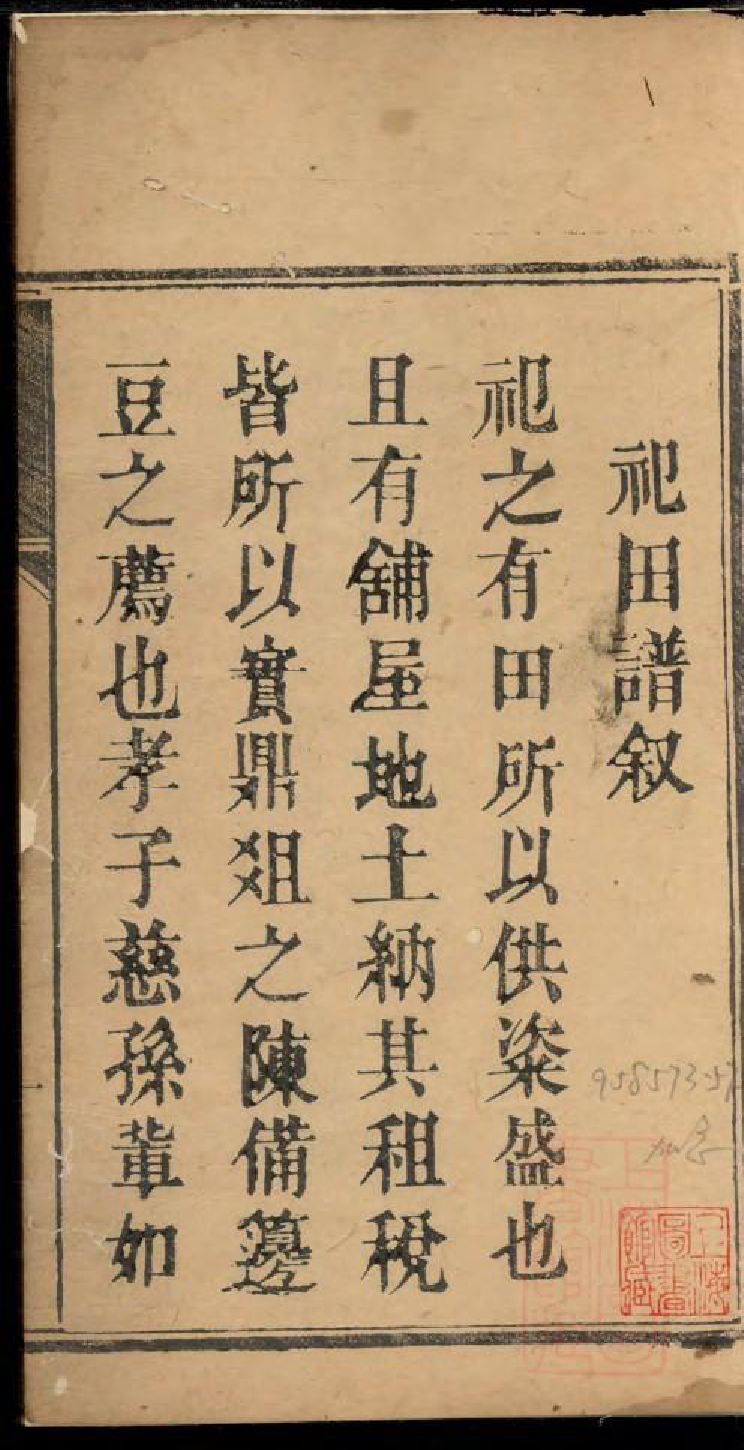 祀田譜叙
祀之有田所以供粢盛也
且有舖屋地土納其租稅
皆所以實鼎俎之陳備籩
豆之薦也孝子慈孫軰如
上海圖書館藏